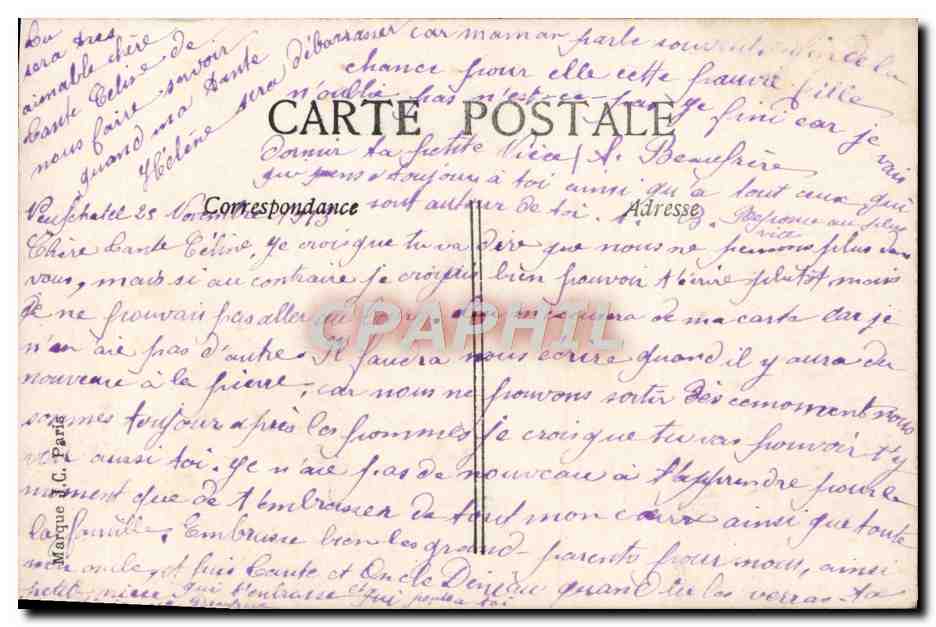 Tu
sera très
aimable chère
tante Céline de
nous faire savoir
quand ma tante
Hélène sera débarrasser car maman parle souvent de la
chance pour elle cette pauvre fille
n'oublie pas n'est-ce-pas je fini car je vais
CARTE POSTALE
dormir ta petite Nièce
qui pense toujours à toi ainsi qu'à tout ceux qui
sont autour de toi. Réponse au plus
vite
Correspondance
Adresse
Neufchatel 25
Chère tante Céline, Je crois que tu va dire que nous ne pensons plus
vous, mais si au contraire je croyais bien pouvoir t'écrire plutôt mais
Je ne pouvais pas aller de ma carte car je
n'en aie pas d'autre. Il faudra nous écrire quand il y aura du
nouveau à la pierre, car nous ne pouvons sortir dès ce moment nous
sommes toujour après les pommes je crois que tu vas pouvoir t'y
voir aussi toi. Je n'aie pas de nouveau à t'apprendre pour le
moment que de t'embrasser de tout mon cœur ainsi que toute
la famille. Embrasse bien les grand-parents pour nous, ainsi
mon oncle, et puis tante et Oncle quand tu les verras. ta
petite nièce qui t'embrasse et qui pense à toi
Marque J.C. Paris
CPAPHIL